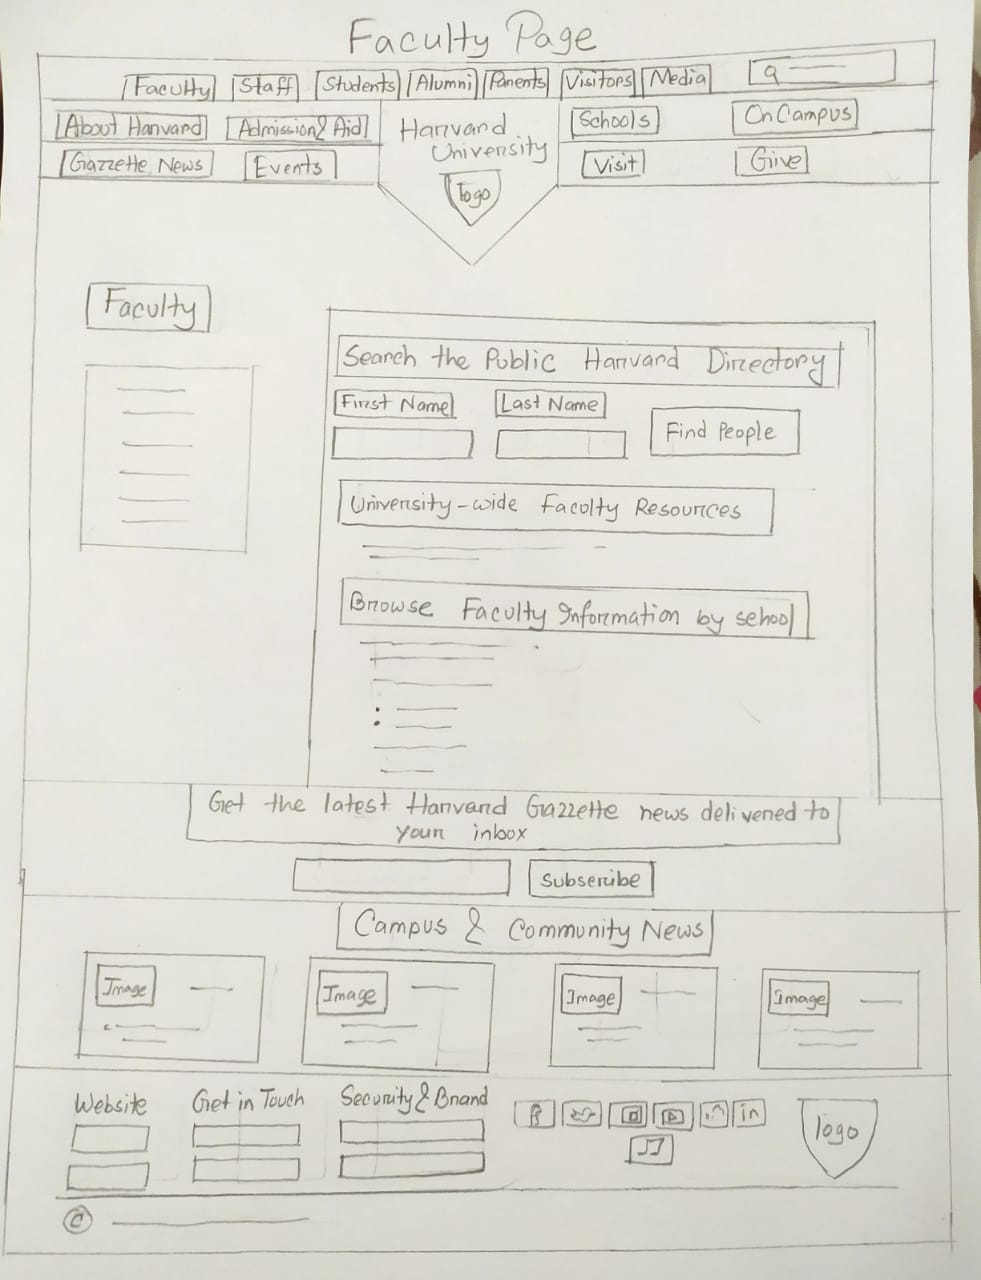 Faculty Page
Faculty Staff Students Alumni Parents Visitors Media
About Harvard Admission & Aid Harvard University Schools On Campus
Gazzette News Events logo Visit Give
Faculty
Search the Public Harvard Directory
First Name Last Name
Find People
University-wide Faculty Resources
Browse Faculty Information by school
Get the latest Harvard Gazzette news delivered to
your inbox
Subscribe
Campus & Community News
Image Image Image Image
Website Get in Touch Security & Brand
in
logo
©